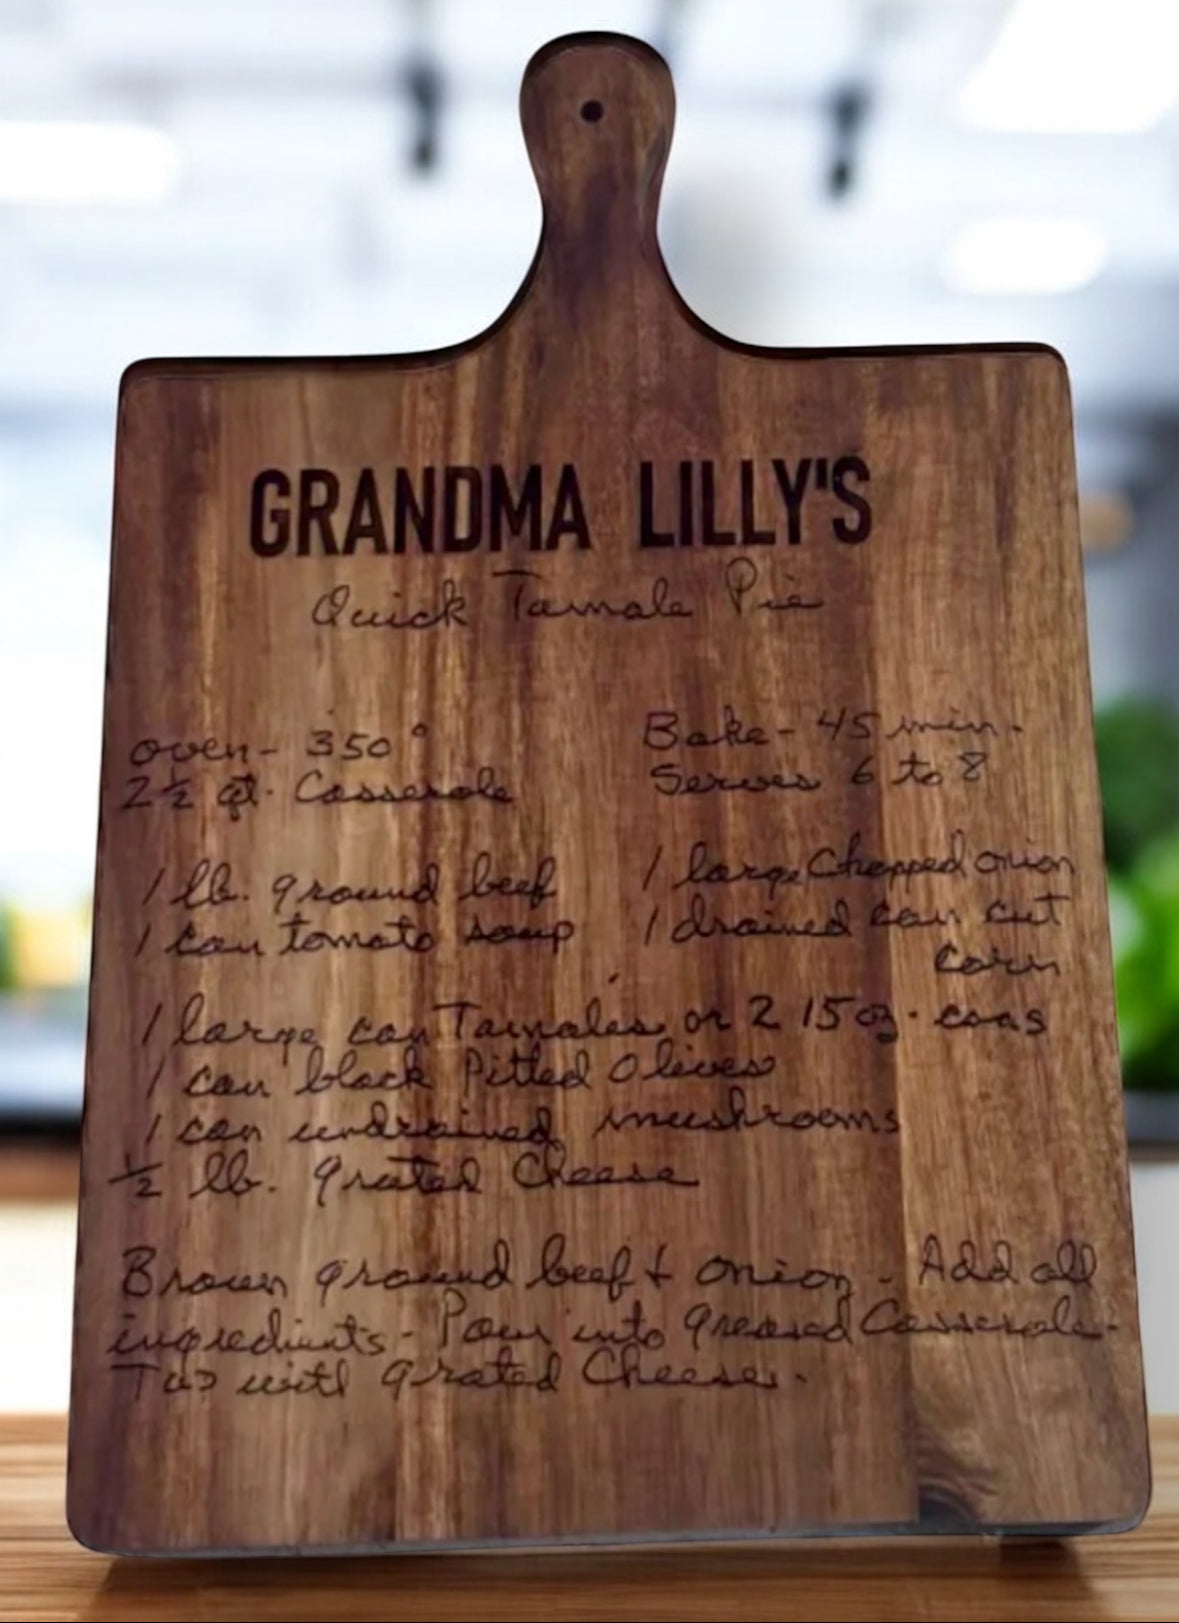 GRANDMA LILLY'S
Quick Tamale Pie
oven - 350°
2½ qt. Casserole
Bake - 45 min.
Serves 6 to 8
1 lb. ground beef
1 can tomato soup
1 large Chopped onion
1 drained can cut
corn
1 large can Tamales or 2 15 oz. cans
1 can black Pitted Olives
1 can undrained mushrooms
½ lb. grated Cheese
Brown ground beef + onion - Add all
ingredients - Pour into greased Casserole -
Top with grated Cheese.